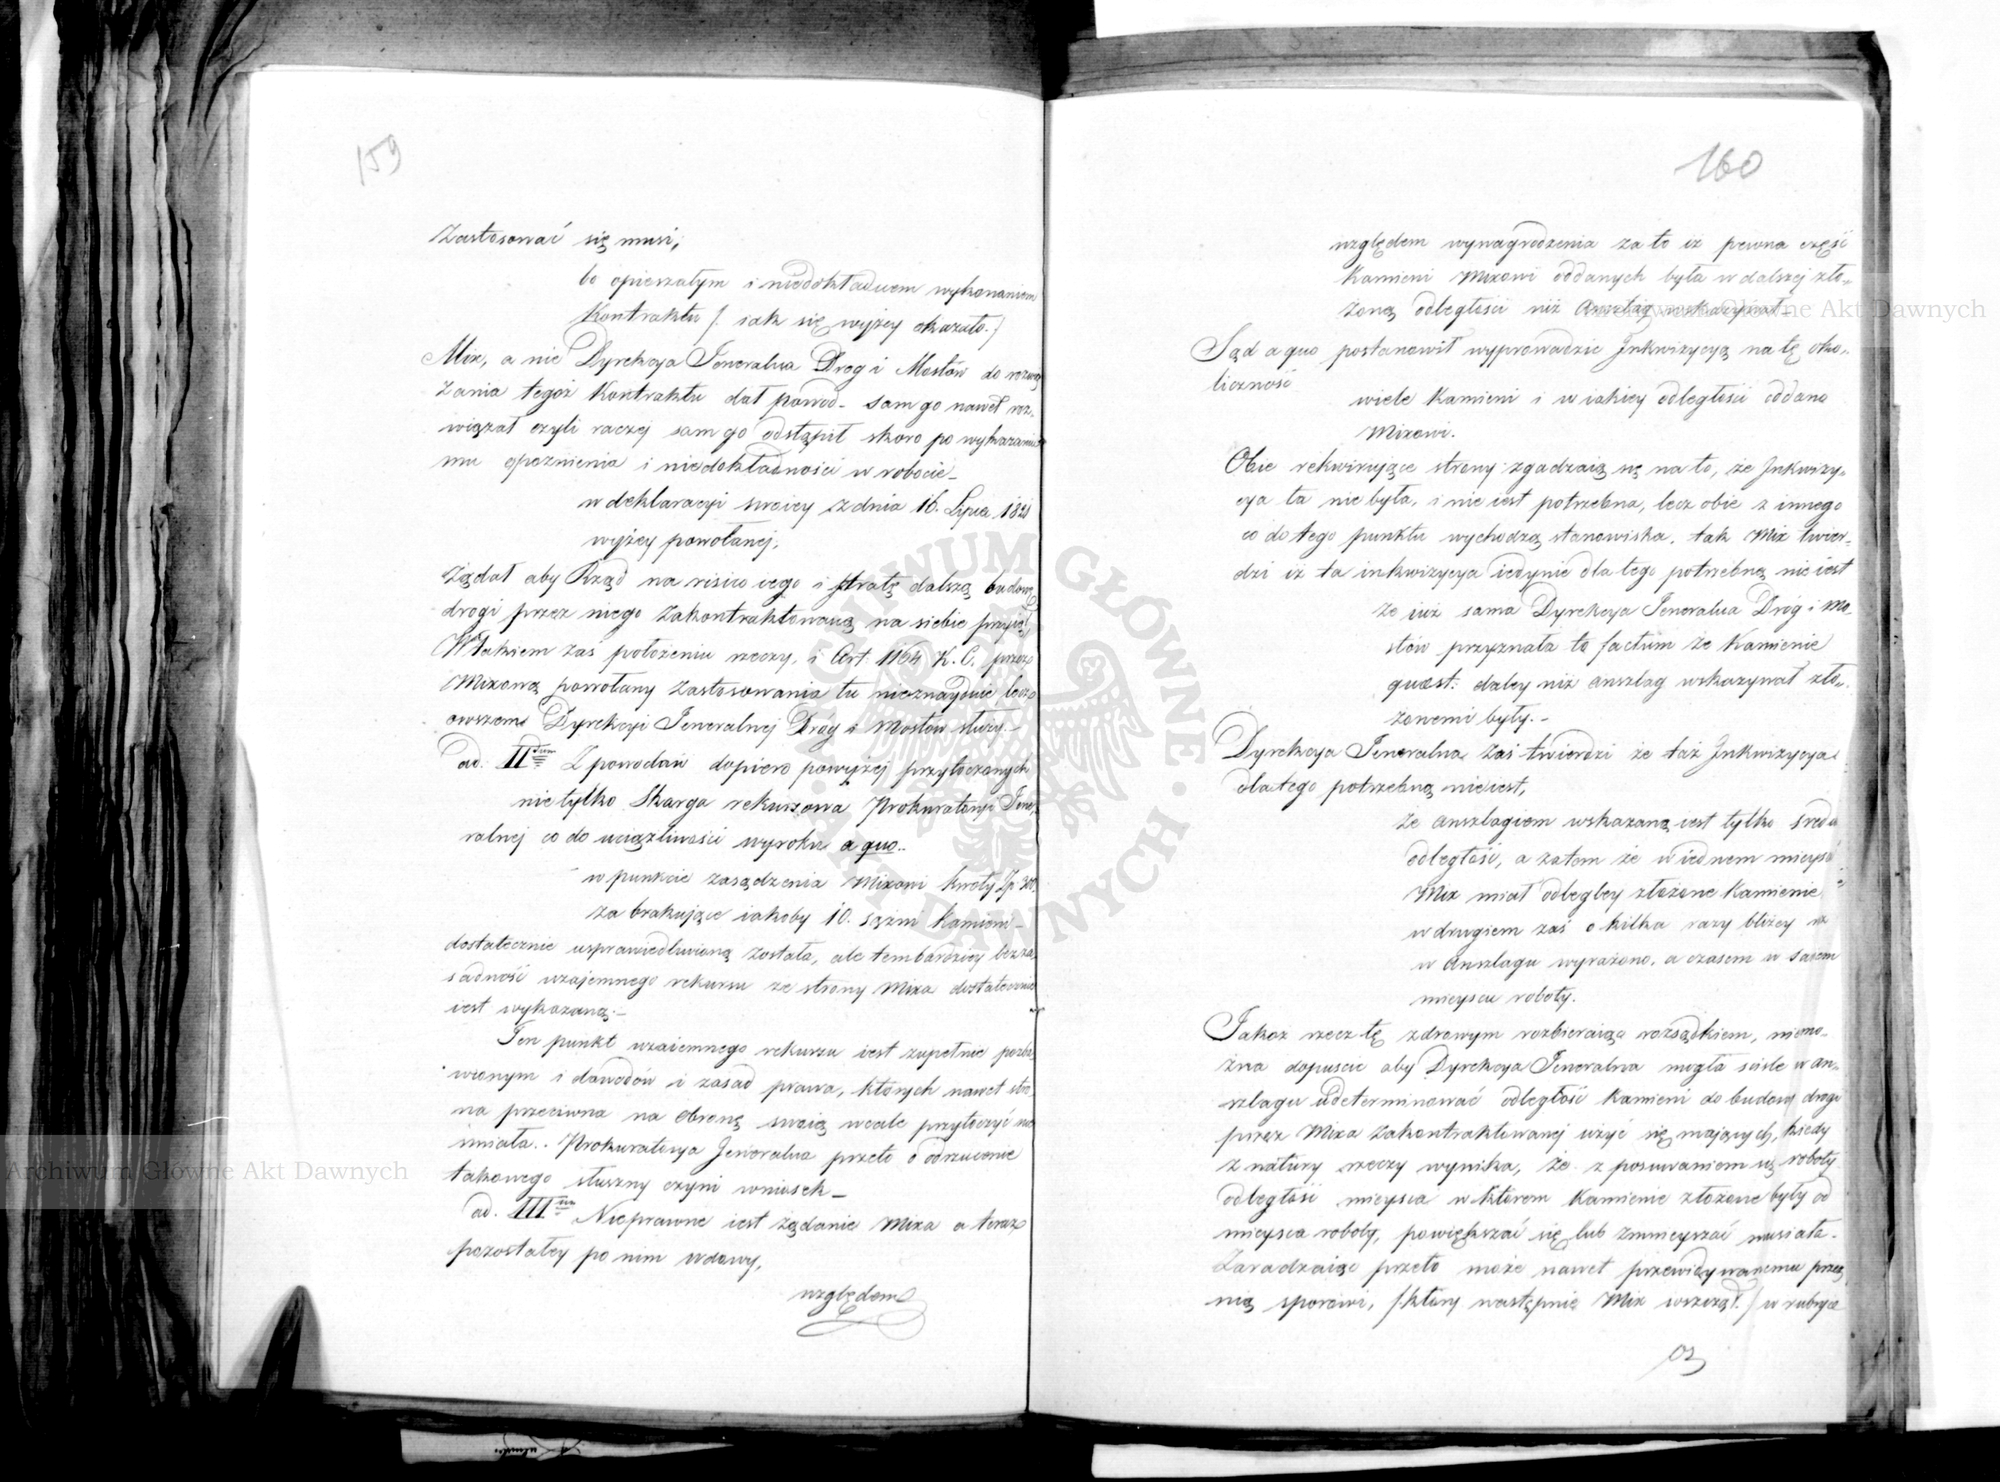 159
Zastosować się musi;
bo opieszałym i niedokładnem wykonaniem
Kontraktu /: iak się wyżey okazało :/
Mix, a nie Dyrekcya Jeneralna Dróg i Mostów do rozwią
zania tegoż Kontraktu dał powód – sam go nawet roz-
wiązał czyli raczej sam go odstąpił skoro po wykazaniu
mu opoznienia i niedokładności w robocie –
w deklaracyi swoiey z dnia 16. Lipca 1821
wyżey powołanej,
Żądał aby Rząd na risico iego i stratę dalszą budowę
drogi przez niego zakontraktowaną na siebie przyiął
W takiem zaś położeniu rzeczy, i Art. 1164 K. C. przez
Mixową powołany zastosowania tu nieznayduie lecz
owszem Dyrekcyi Jeneralnej Dróg i Mostów służy. –
ad. II Z powodów dopiero powyżej przytoczonych
nie tylko Skarga rekursowa Prokuratoryi Jene-
ralnej co do uciążliwości wyroku a quo..
w punkcie zasądzenia Mixowi kwoty Zp. 300.
za brakuiące iakoby 10. sążni kamieni –
dostatecznie usprawiedliwioną została, ale tembardziey bezza
sadność wzajemnego rekursu ze strony Mixa dostatecznie
iest wykazaną. –
Ten punkt wzaiemnego rekursu iest zupełnie pozba
wionym i dowodów i zasad prawa, których nawet stro
na przeciwna na obronę swoią wcale przytoczyć nie
umiała.. Prokuratorya Jeneralna przeto o odrzucenie
takowego słuszny czyni wniosek –
ad. III Nieprawne iest żądanie Mixa a teraz
pozostałey po nim wdowy,
względem
160
względem wynagrodzenia za to iż pewna część
Kamieni Mixowi oddanych była w dalszej zło-
żoną odległości niż Anszlag wskazywał.
Sąd a quo postanowił wyprowadzić Inkwizycyą na tę oko-
liczność
wiele Kamieni i w iakiey odległości oddano
Mixowi.
Obie rekwiruiące strony zgadzaią się na to, że Inkwizy-
cya ta nie była, i nie iest potrzebna, lecz obie z innego
co do tego punktu wychodzą stanowiska, tak Mix twier-
dzi iż ta inkwizycya iedynie dla tego potrzebną nie iest
że iuż sama Dyrekcya Jeneralna Dróg i Mo-
stów przyznała to factum że Kamienie
quaest: daley niż anszlag wskazywał zło-
żonemi były. –
Dyrekcya Jeneralna zaś twierdzi że taż Inkwizycya
dlatego potrzebną nie iest,
że anszlagiem wskazaną iest tylko średnia
odległość, a zatem że w iednem mieysc
Mix miał odlegley złożone Kamienie
w drugiem zaś o kilka razy bliżey niż
w Anszlagu wyrażono, a czasem w samem
mieyscu roboty.
Jakoż rzecz tę zdrowym rozbieraiąc rozsądkiem, niemo-
żna dopuścić aby Dyrekcya Jeneralna mogła ściśle w an-
szlagu udeterminować odległość Kamieni do budowy drogi
przez Mixa zakontraktowanej użyć się mających, kiedy
z natury rzeczy wynika, że z posuwaniem się roboty
odległość mieysca w którem Kamienie złożone były od
mieysca roboty, powiększać się lub zmnieyszać musiała.
Zaradzaiąc przeto może nawet przewidywanemu przez
nią sporowi, /: który następnie Mix wszczął :/ w rubryce